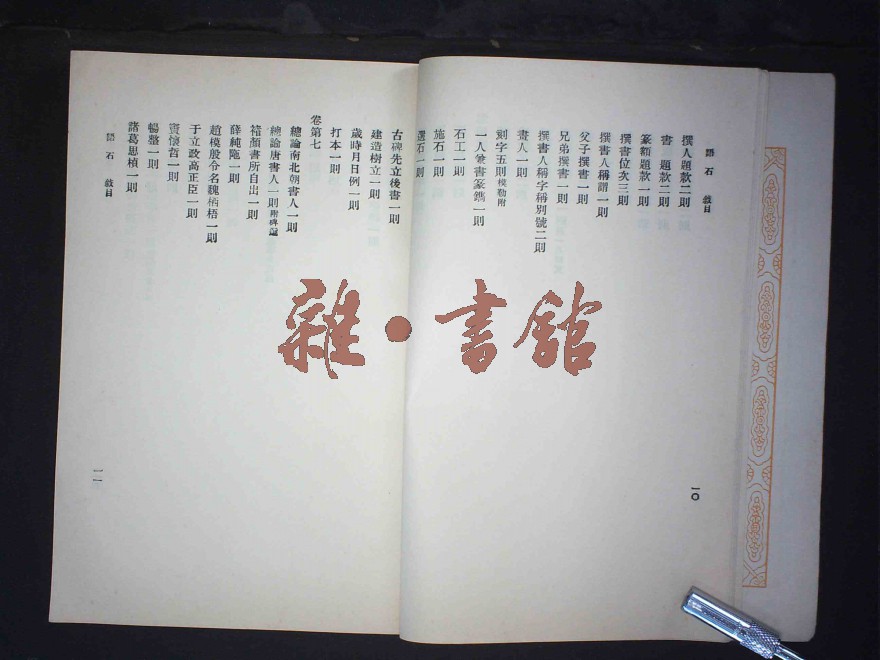 語石　敍目
撰人題款二則
書　題款二則
篆額題款一則
撰書位次三則
撰書人稱謂一則
父子撰書一則
兄弟撰書一則
撰書人稱字稱別號二則
書人一則
刻字五則模勒附
一人兼書篆鐫一則
石工一則
施石一則
選石一則
一〇
古碑先立後書一則
建造樹立一則
歲時月日例一則
打本一則
卷第七
總論南北朝書人一則
總論唐書人一則附碑誌
褚顏書所自出一則
薛純陁一則
趙模殷令名魏栖梧一則
于立政高正臣一則
竇懷哲一則
暢整一則
諸葛思楨一則
語石　敍目
一一
雜·書館